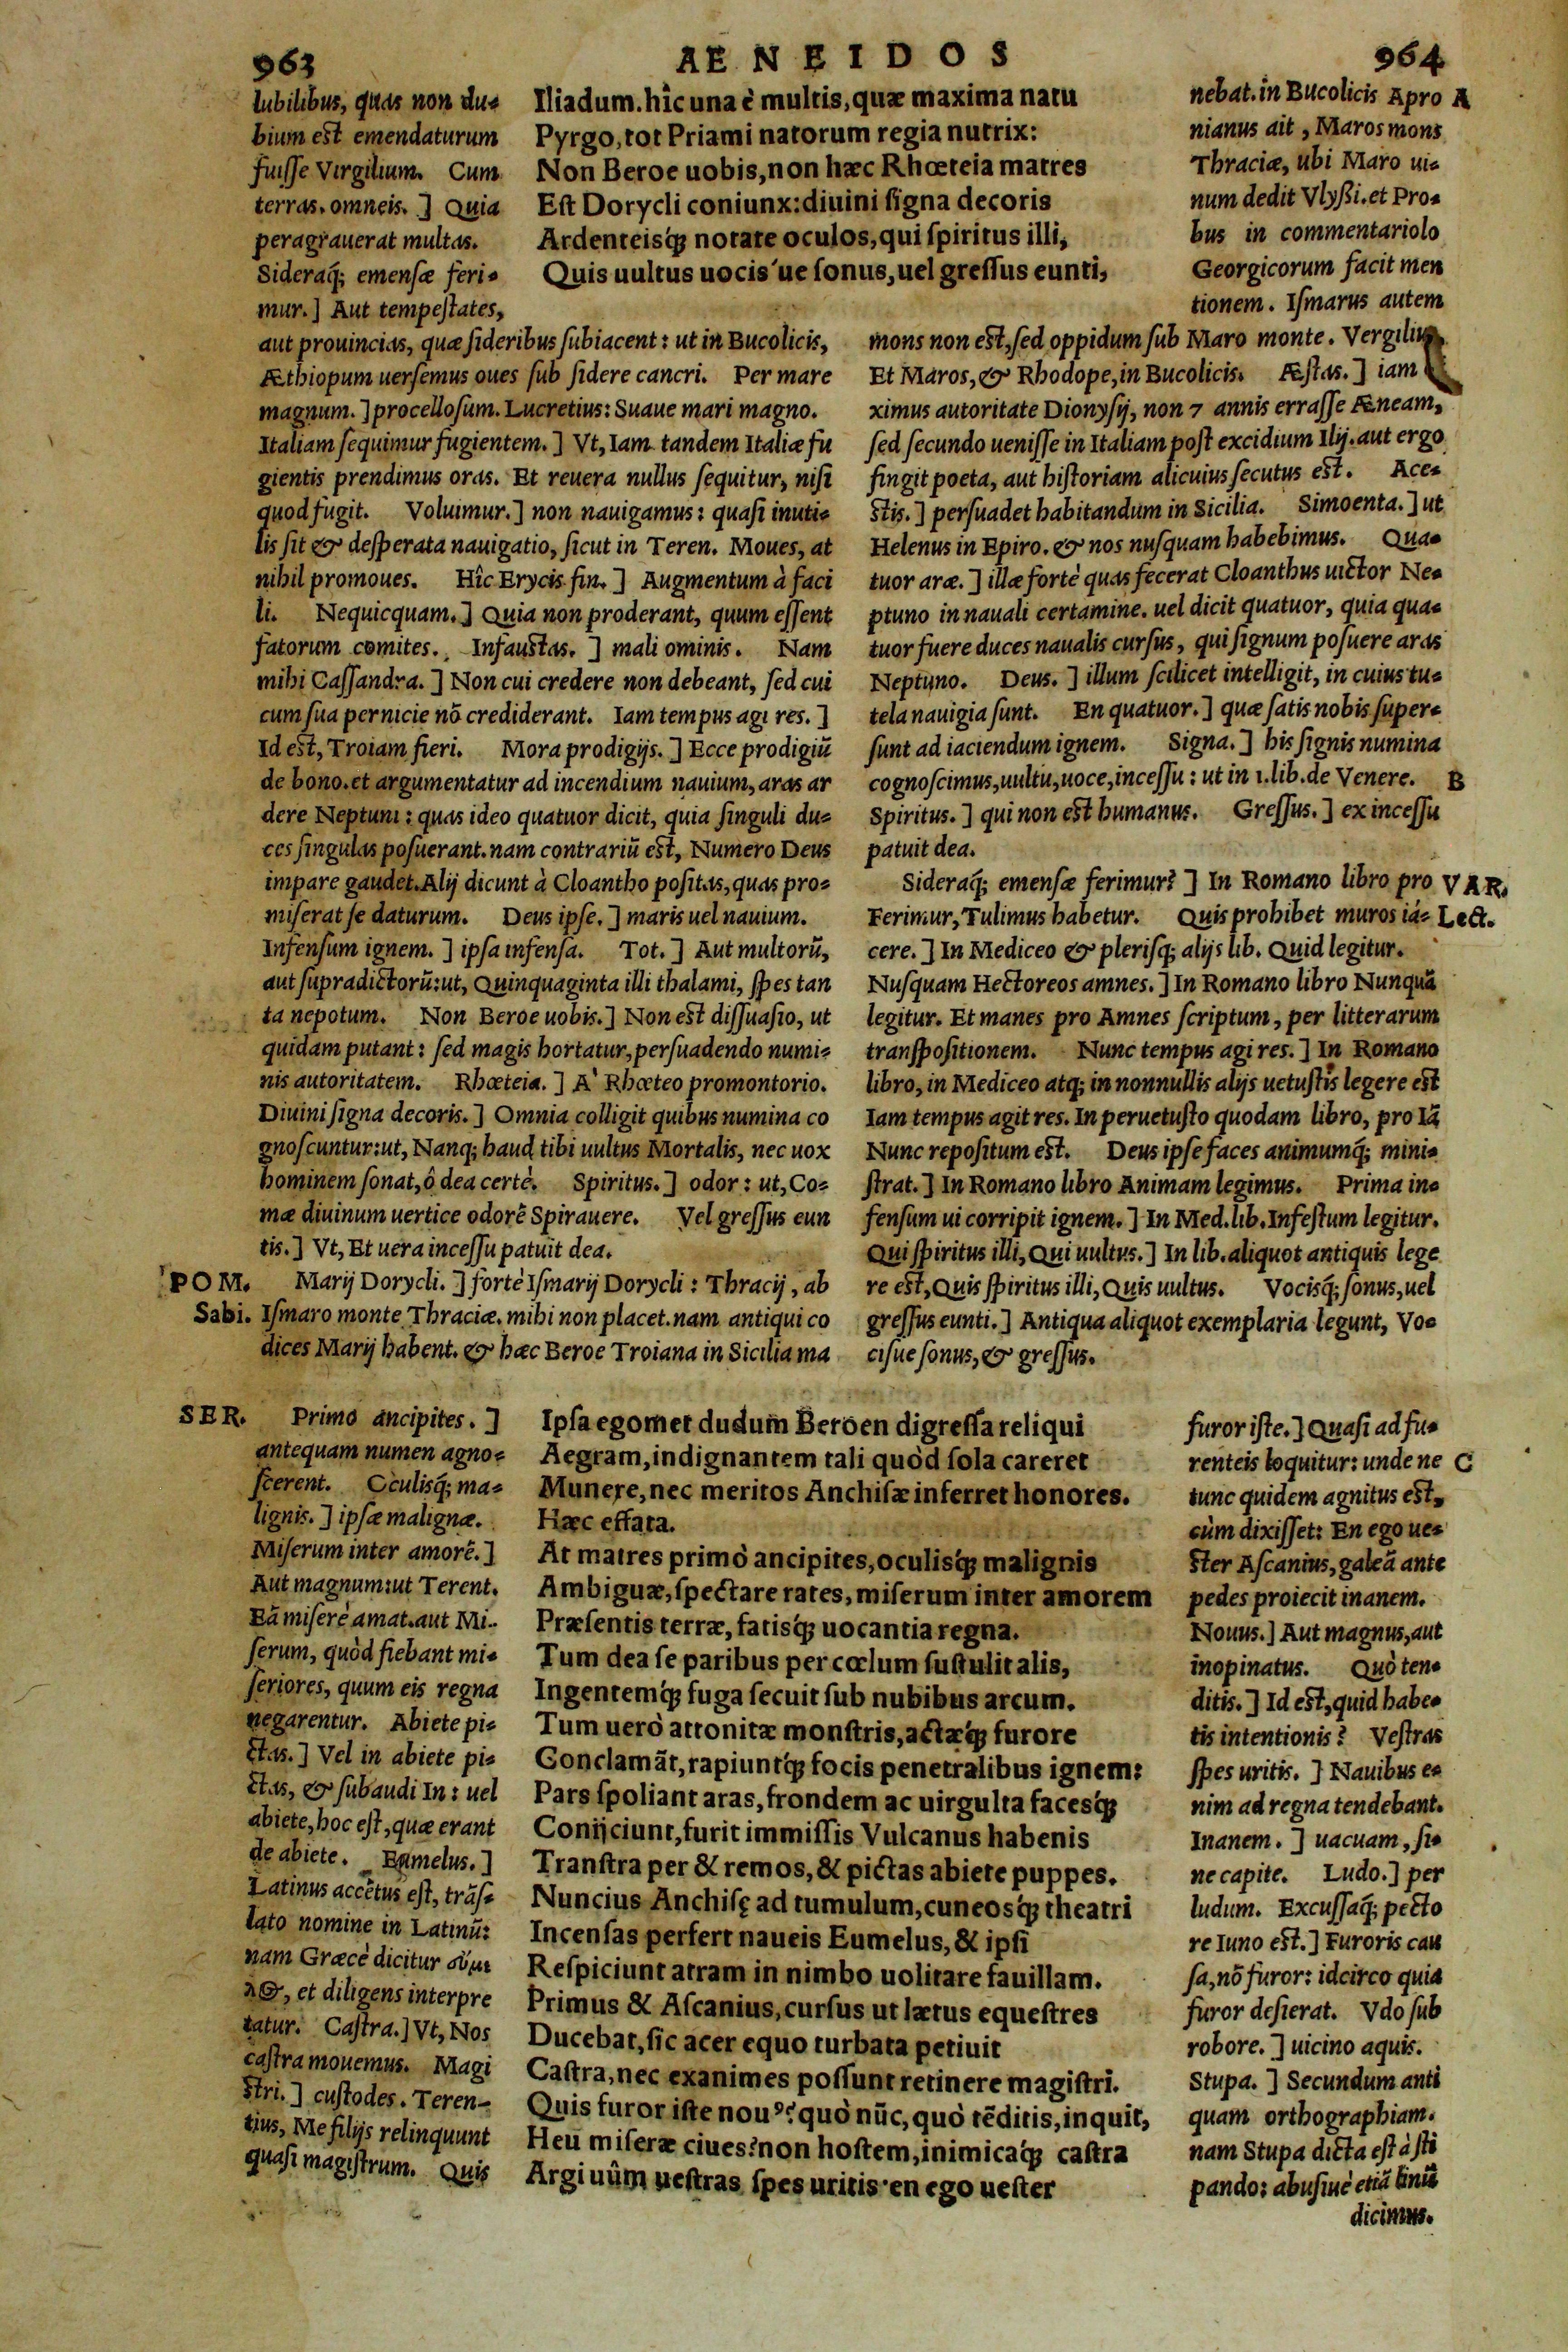 963
AENEIDOS
964
lubilibus, quas non du-
bium est emendaturum
fuisse Virgilium. Cum
terras. omneis. ] Quia
peragrauerat multas.
Sideraq́; emensæ feri-
mur.] Aut tempestates,
Iliadum. hîc una è multis, quæ maxima natu
Pyrgo, tot Priami natorum regia nutrix:
Non Beroe uobis, non hæc Rhœteia matres
Est Dorycli coniunx: diuini signa decoris
Ardenteisq́; notate oculos, qui spiritus illi,
Quis uultus uocis'ue sonus, uel gressus eunti,
nebat. in Bucolicis Apro A
nianus ait, Maros mons
Thraciæ, ubi Maro ui-
num dedit Vlyßi. et Pro-
bus in commentariolo
Georgicorum facit men
tionem. Ismarus autem
aut prouincias, quæ sideribus subiacent: ut in Bucolicis,
Æthiopum uersemus oues sub sidere cancri. Per mare
magnum. ] procellosum. Lucretius: Suaue mari magno.
Italiam sequimur fugientem. ] Vt, Iam tandem Italiæ fu
gientis prendimus oras. Et reuera nullus sequitur, nisi
quod fugit. Voluimur.] non nauigamus: quasi inuti-
lis sit & desperata nauigatio, sicut in Teren. Moues, at
nihil promoues. Hîc Erycis fin. ] Augmentum à faci
li. Nequicquam. ] Quia non proderant, quum essent
fatorum comites. Infaustas. ] mali ominis. Nam
mihi Cassandra. ] Non cui credere non debeant, sed cui
cum sua pernicie nō crediderant. Iam tempus agi res. ]
Id est, Troiam fieri. Mora prodigijs. ] Ecce prodigiū
de bono. et argumentatur ad incendium nauium, aras ar
dere Neptuni: quas ideo quatuor dicit, quia singuli du-
ces singulas posuerant. nam contrariū est, Numero Deus
impare gaudet. Alij dicunt à Cloantho positas, quas pro-
miserat se daturum. Deus ipse. ] maris uel nauium.
Infensum ignem. ] ipsa infensa. Tot. ] Aut multorū,
aut supradictorū: ut, Quinquaginta illi thalami, spes tan
ta nepotum. Non Beroe uobis. ] Non est dissuasio, ut
quidam putant: sed magis hortatur, persuadendo numi-
nis autoritatem. Rhœteia. ] A' Rhœteo promontorio.
Diuini signa decoris. ] Omnia colligit quibus numina co
gnoscuntur: ut, Nanq; haud tibi uultus Mortalis, nec uox
hominem sonat, ô dea certè. Spiritus. ] odor: ut, Co-
mæ diuinum uertice odorē Spirauere. Vel gressus eun
tis. ] Vt, Et uera incessu patuit dea.
POM. Marij Dorycli. ] fortè Ismarij Dorycli: Thracij, ab
Sabi. Ismaro monte Thraciæ. mihi non placet. nam antiqui co
dices Marij habent. & hæc Beroe Troiana in Sicilia ma
mons non est, sed oppidum sub Maro monte. Vergilius
Et Maros, & Rhodope, in Bucolicis. Æstas. ] iam
ximus autoritate Dionysij, non 7 annis errasse Æneam,
sed secundo uenisse in Italiam post excidium Ilij. aut ergo
fingit poeta, aut historiam alicuius secutus est. Ace-
stis. ] persuadet habitandum in Sicilia. Simoenta. ] ut
Helenus in Epiro. & nos nusquam habebimus. Qua-
tuor aræ. ] illæ fortè quas fecerat Cloanthus uictor Ne-
ptuno in nauali certamine. uel dicit quatuor, quia qua-
tuor fuere duces naualis cursus, qui signum posuere aras
Neptuno. Deus. ] illum scilicet intelligit, in cuius tu-
tela nauigia sunt. En quatuor. ] quæ satis nobis super-
sunt ad iaciendum ignem. Signa. ] his signis numina
cognoscimus, uultu, uoce, incessu: ut in 1. lib. de Venere. B
Spiritus. ] qui non est humanus. Gressus. ] ex incessu
patuit dea.
Sideraq́; emensæ ferimur? ] In Romano libro pro VAR.
Ferimur, Tulimus habetur. Quis prohibet muros iá- Lect.
cere. ] In Mediceo & plerisq; alijs lib. Quid legitur.
Nusquam Hectoreos amnes. ] In Romano libro Nunquā
legitur. Et manes pro Amnes scriptum, per litterarum
transpositionem. Nunc tempus agi res. ] In Romano
libro, in Mediceo atq; in nonnullis alijs uetustis legere est
Iam tempus agit res. In peruetusto quodam libro, pro Iā
Nunc repositum est. Deus ipse faces animumq́; mini-
strat. ] In Romano libro Animam legimus. Prima in-
fensum ui corripit ignem. ] In Med. lib. Infestum legitur.
Qui spiritus illi, Qui uultus. ] In lib. aliquot antiquis lege
re est, Quis spiritus illi, Quis uultus. Vocisq́; sonus, uel
gressus eunti. ] Antiqua aliquot exemplaria legunt, Vo-
cisue sonus, & gressus.
SER. Primo ancipites. ]
antequam numen agno-
scerent. Oculisq́; ma-
lignis. ] ipsæ malignæ.
Miserum inter amorē. ]
Aut magnum: ut Terent.
Eā miserè amat. aut Mi-
serum, quòd fiebant mi-
seriores, quum eis regna
negarentur. Abiete pi-
ctas. ] Vel in abiete pi-
ctas, & subaudi In: uel
abiete, hoc est, quæ erant
de abiete. Eumelus. ]
Latinus accētus est, trās-
lato nomine in Latinū:
nam Græcè dicitur εὔμη
λος, et diligens interpre
tatur. Castra. ] Vt, Nos
castra mouemus. Magi
stri. ] custodes. Teren-
tius, Me filijs relinquunt
quasi magistrum. Quis
Ipsa egomet dudum Beroen digressa reliqui
Aegram, indignantem tali quòd sola careret
Munere, nec meritos Anchisæ inferret honores.
Hæc effata.
At matres primò ancipites, oculisq́; malignis
Ambiguæ, spectare rates, miserum inter amorem
Præsentis terræ, fatisq́; uocantia regna.
Tum dea se paribus per cœlum sustulit alis,
Ingentemq́; fuga secuit sub nubibus arcum.
Tum uerò attonitæ monstris, actæq́; furore
Conclamāt, rapiuntq́; focis penetralibus ignem:
Pars spoliant aras, frondem ac uirgulta facesq́;
Conijciunt, furit immissis Vulcanus habenis
Transtra per & remos, & pictas abiete puppes.
Nuncius Anchisę ad tumulum, cuneosq́; theatri
Incensas perfert naueis Eumelus, & ipsi
Respiciunt atram in nimbo uolitare fauillam.
Primus & Ascanius, cursus ut lætus equestres
Ducebat, sic acer equo turbata petiuit
Castra, nec exanimes possunt retinere magistri.
Quis furor iste nouꝰ? quò nūc, quò tēditis, inquit,
Heu miseræ ciues? non hostem, inimicaq́; castra
Argiuûm uestras spes uritis. en ego uester
furor iste. ] Quasi ad fu-
renteis loquitur: unde ne C
tunc quidem agnitus est,
cùm dixisset: En ego ue-
ster Ascanius, galeā ante
pedes proiecit inanem.
Nouus. ] Aut magnus, aut
inopinatus. Quò ten-
ditis. ] Id est, quid habe-
tis intentionis? Vestras
spes uritis. ] Nauibus e-
nim ad regna tendebant.
Inanem. ] uacuam, si-
ne capite. Ludo. ] per
ludum. Excussaq́; pecto
re Iuno est. ] Furoris cau
sa, nō furor: idcirco quia
furor desierat. Vdo sub
robore. ] uicino aquis.
Stupa. ] Secundum anti
quam orthographiam.
nam Stupa dicta est à sti
pando: abusiuè etiā linū
dicimus.